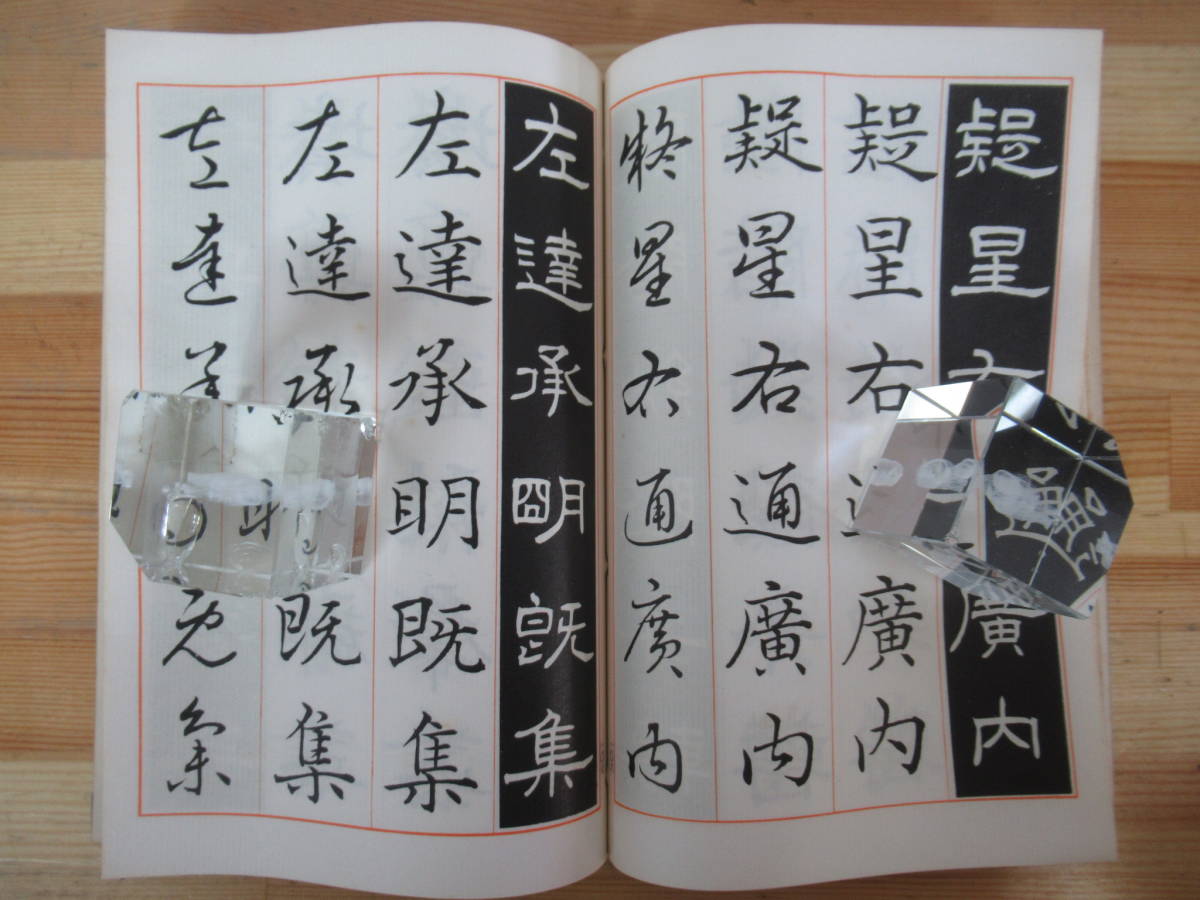 疑星右通廣内
疑星右廣内
疑星右通廣内
疑星右通廣内
左達承明既集
左達承明既集
左達承既集
左達承既集